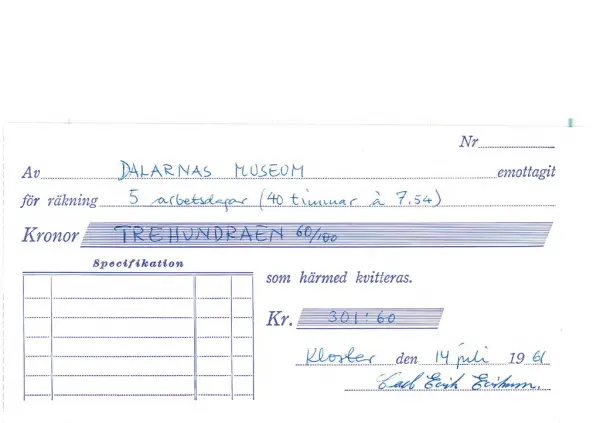 Nr
Av DALARNAS MUSEUM emottagit
för räkning 5 arbetsdagar (40 timmar à 7,54)
Kronor TREHUNDRAEN 60/100
Specifikation
som härmed kvitteras.
Kr. 301:60
Kloster den 14 juli 1961
Carl Erik